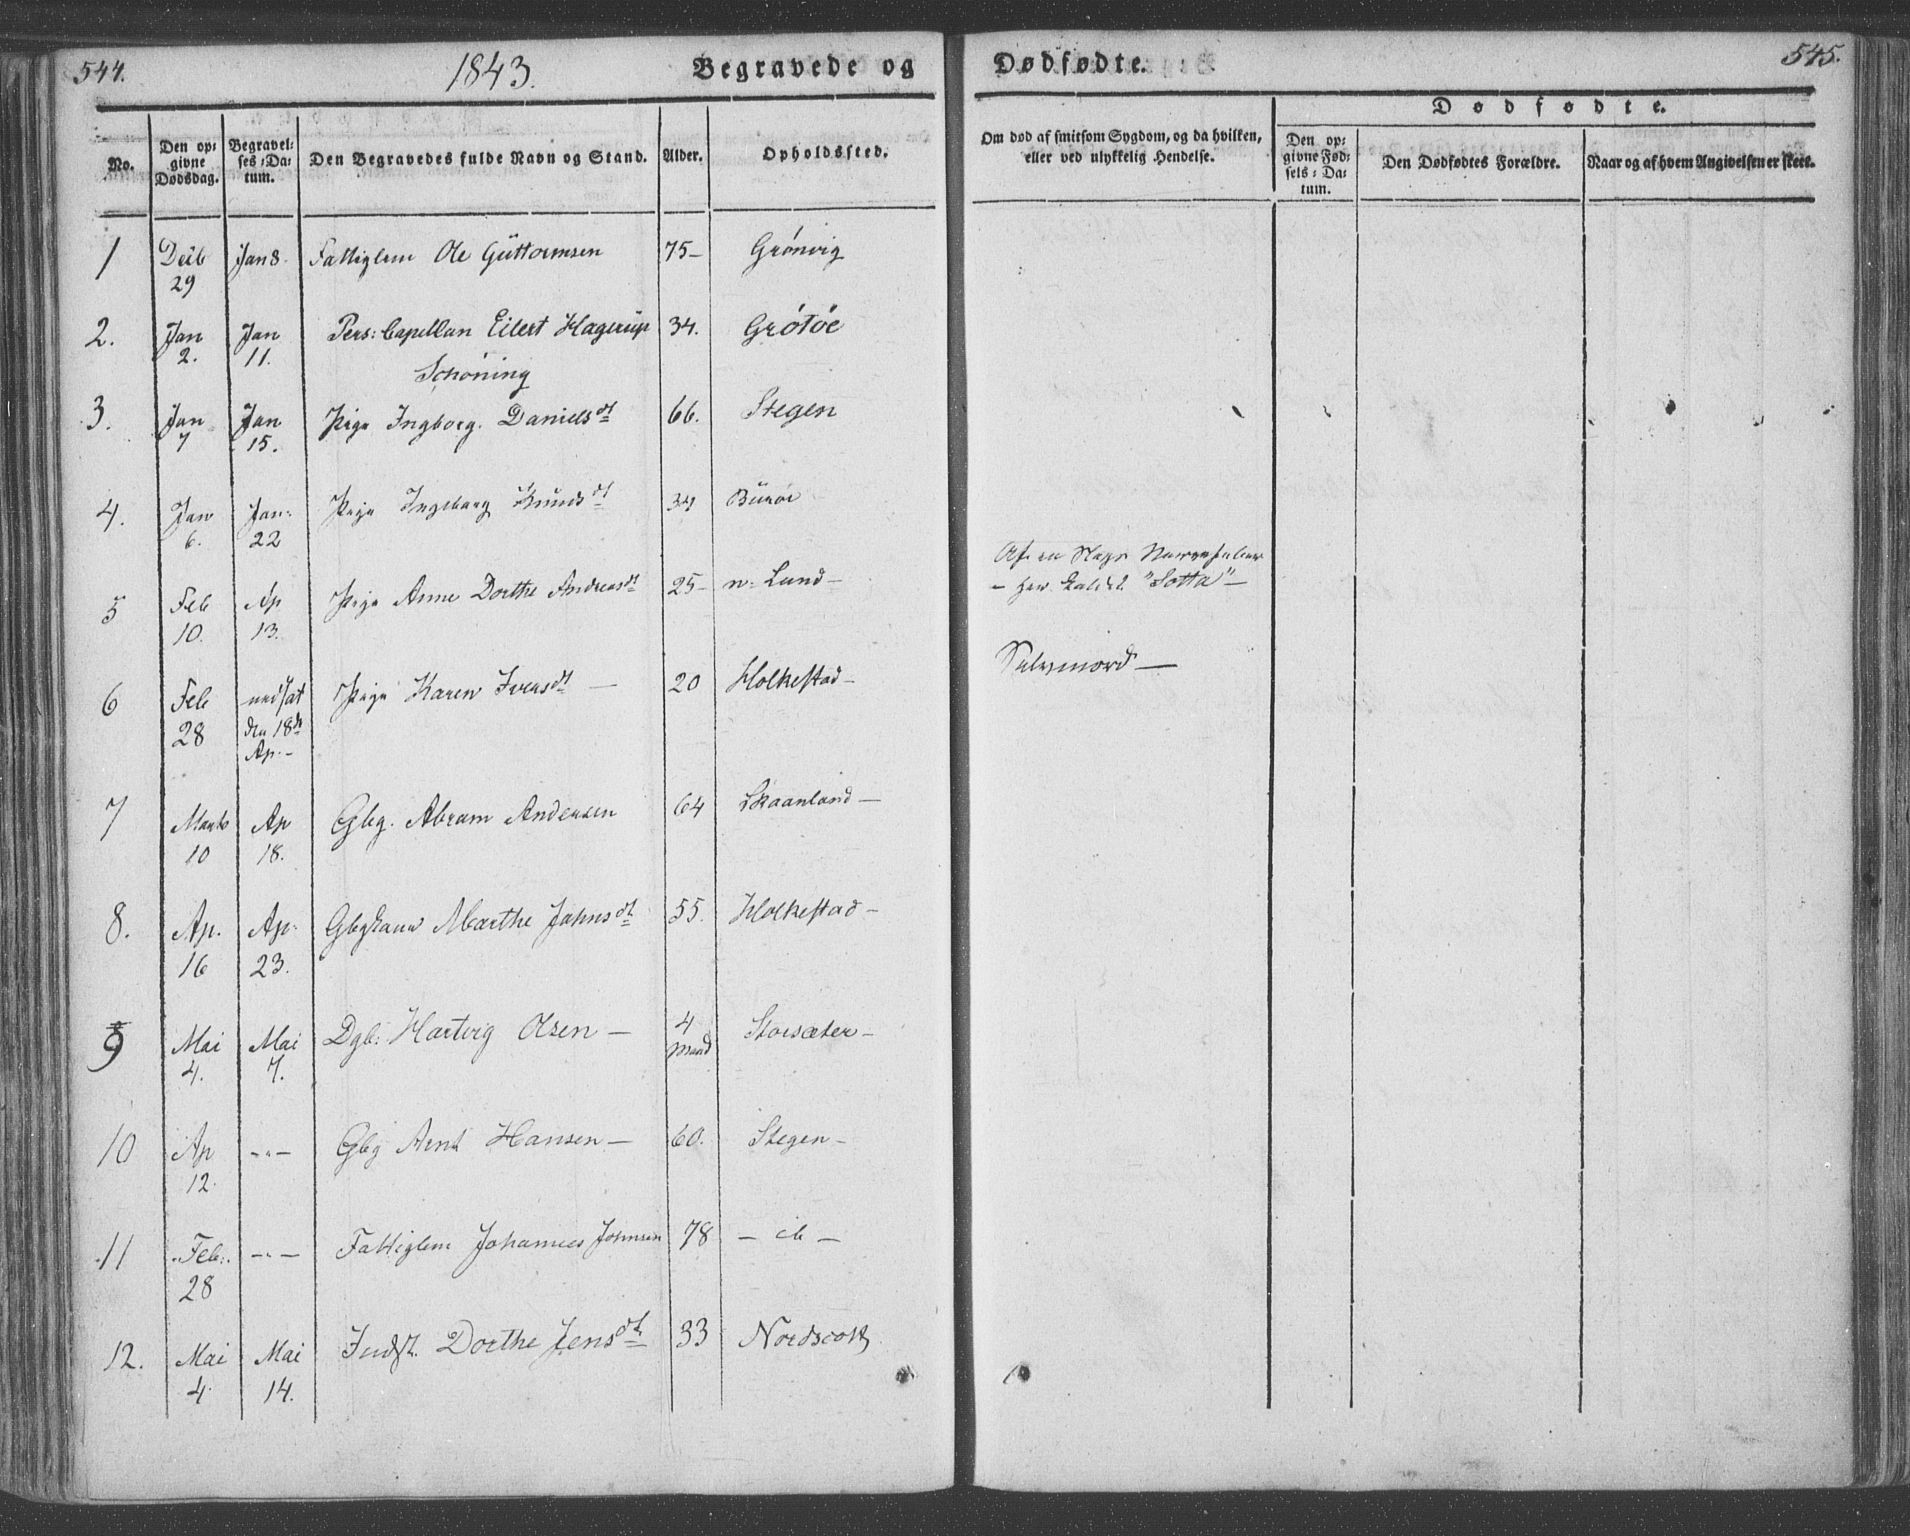 544.
1843.
Begravede og
Dødfødte.
545.
No.
Den op-
givne
Dødsdag.
Begravel-
ses-Da-
tum.
Den Begravedes fulde Navn og Stand.
Alder.
Opholdssted.
Om død af smitsom Sygdom, og da hvilken,
eller ved ulykkelig Hendelse.
Dødfødte.
Den op-
givne Fød-
sels-Da-
tum.
Den Dødfødtes Forældre.
Naar og af hvem Angivelsen er skeet.
1 Decb 29 Jan 8. Fattiglem Ole Güttormsen 75- Grönvig
2. Jan 2. Jan 11. Pers: Capellan Eilert Hagerup 34. Grötöe
Schöning
3. Jan 7 Jan 15. Pige Ingborg. Danielsdt 66. Stegen
4. Jan 6. Jan: 22 Pige Ingeborg Knudsdt 34 Buröe
5 Feb 10. Ap 13. Pige Anne Dorthe Andreasdt 25- n: Lund-
Af en Slags
- her kaldet "Sotta" -
6 Feb 28 nedsat den 18de Ap.- Pige Karen Iversdt - 20 Holkestad-
Selvmord -
7 Marts 10 Ap 18. Gbg. Abram Andersen 64 Skaanland -
8. Ap. 16 Ap: 23. Gbgkane Marthe Jahnsdt 55. Holkestad -
9 Mai 4. Mai 7. Dgb: Hartvig Olsen - 4 Maand Storsæter -
10 Ap 12. -"- Gbg Arnt Hansen - 60. Stegen -
11 Feb: 28 -"- Fattiglem Johannes Johnsen 78 - ib -
12. Mai 4 Mai 14. Indst. Dorthe Jensdt. 33 Nordscott